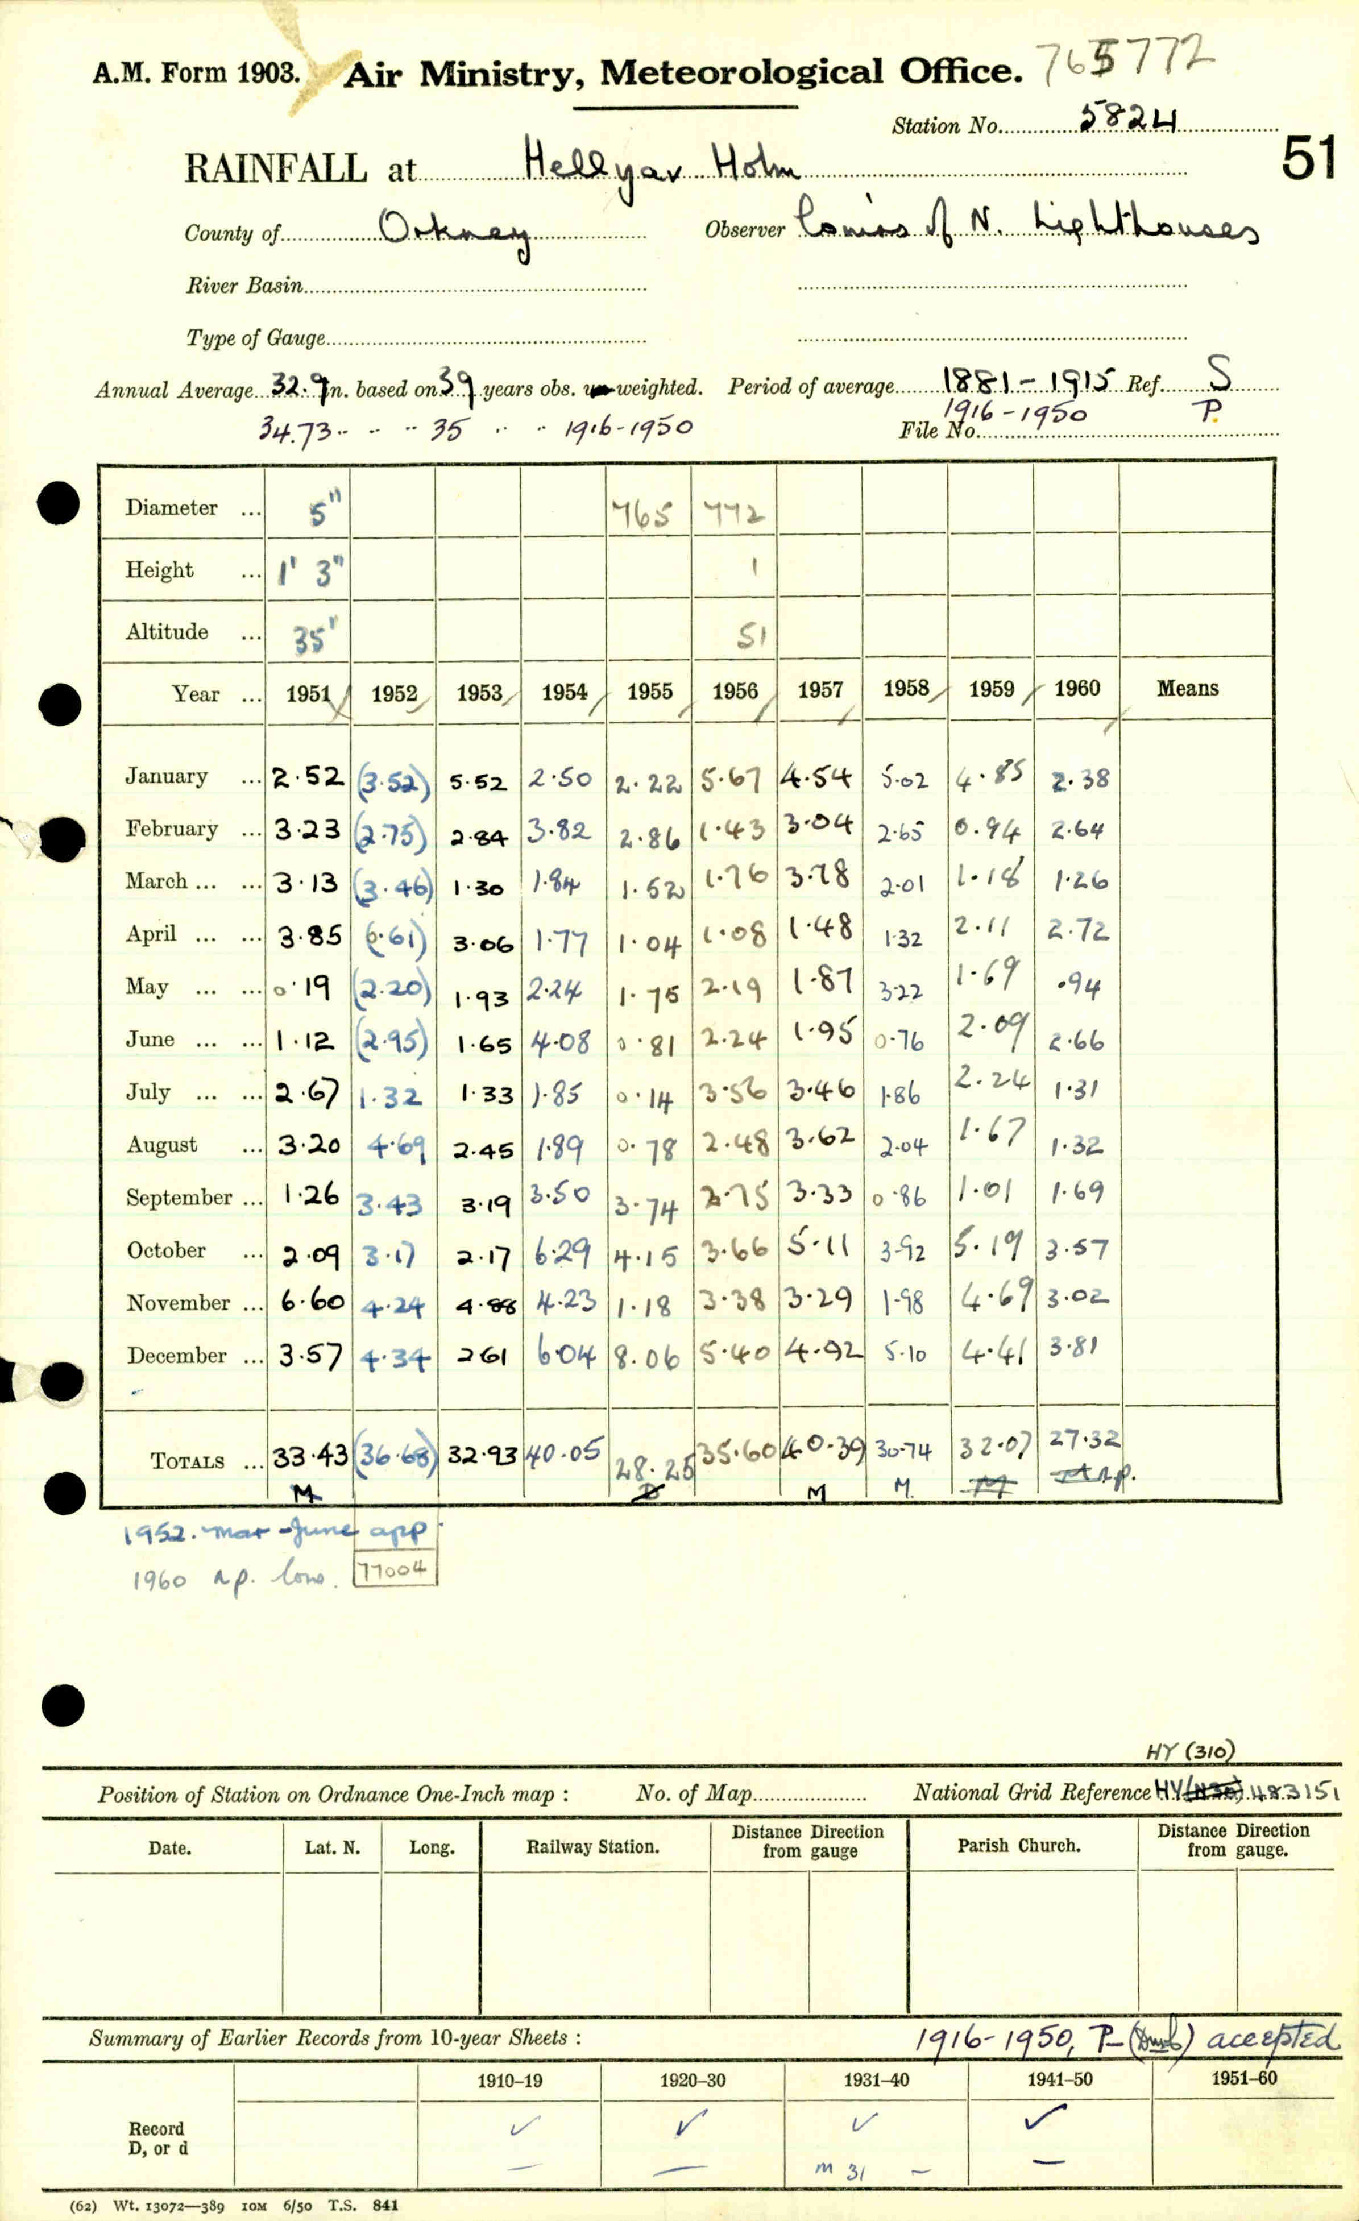 A.M. Form 1903. Air Ministry, Meteorological Office. 765772
Station No. 5824
51
RAINFALL at Hellyar Holm
County of Orkney Observer Com'rs of N. Lighthouses
River Basin
Type of Gauge
Annual Average 32.9 in. based on 39 years obs. weighted. Period of average 1881-1915 Ref. S
34.73 " " " 35 " " 1916-1950 1916-1950 P.
File No.
Diameter ... 5" 765 772
Height ... 1' 3" 1
Altitude ... 35" 51
Year ... 1951 1952 1953 1954 1955 1956 1957 1958 1959 1960 Means
January ... 2.52 (3.52) 5.52 2.50 2.22 5.67 4.54 5.02 4.85 2.38
February ... 3.23 (2.75) 2.84 3.82 2.86 1.43 3.04 2.65 0.94 2.64
March ... ... 3.13 (3.46) 1.30 1.84 1.52 1.76 3.78 2.01 1.18 1.26
April ... ... 3.85 (0.61) 3.06 1.77 1.04 1.08 1.48 1.32 2.11 2.72
May ... ... 0.19 (2.20) 1.93 2.24 1.75 2.19 1.87 3.22 1.69 .94
June ... ... 1.12 (2.95) 1.65 4.08 0.81 2.24 1.95 0.76 2.09 2.66
July ... ... 2.67 1.32 1.33 1.85 0.14 3.56 3.46 1.86 2.24 1.31
August ... 3.20 4.69 2.45 1.89 0.78 2.48 3.62 2.04 1.67 1.32
September ... 1.26 3.43 3.19 3.50 3.74 2.75 3.33 0.86 1.01 1.69
October ... 2.09 3.17 2.17 6.29 4.15 3.66 5.11 3.92 5.19 3.57
November ... 6.60 4.24 4.88 4.23 1.18 3.38 3.29 1.98 4.69 3.02
December ... 3.57 4.34 2.61 6.04 8.06 5.40 4.92 5.10 4.41 3.81
TOTALS ... 33.43 (36.68) 32.93 40.05 28.25 35.60 40.39 30.74 32.07 27.32
M D M M. M n.p.
1952. Mar - June app.
1960 n.p. low. 77004
HY (310)
Position of Station on Ordnance One-Inch map : No. of Map National Grid Reference HY 483151
Date. Lat. N. Long. Railway Station. Distance Direction from gauge Parish Church. Distance Direction from gauge.
Summary of Earlier Records from 10-year Sheets : 1916-1950, P accepted
1910–19 1920–30 1931–40 1941–50 1951–60
Record ✓ ✓ ✓ ✓
D, or d — — M 31 — —
(62) Wt. 13072—389 10M 6/50 T.S. 841